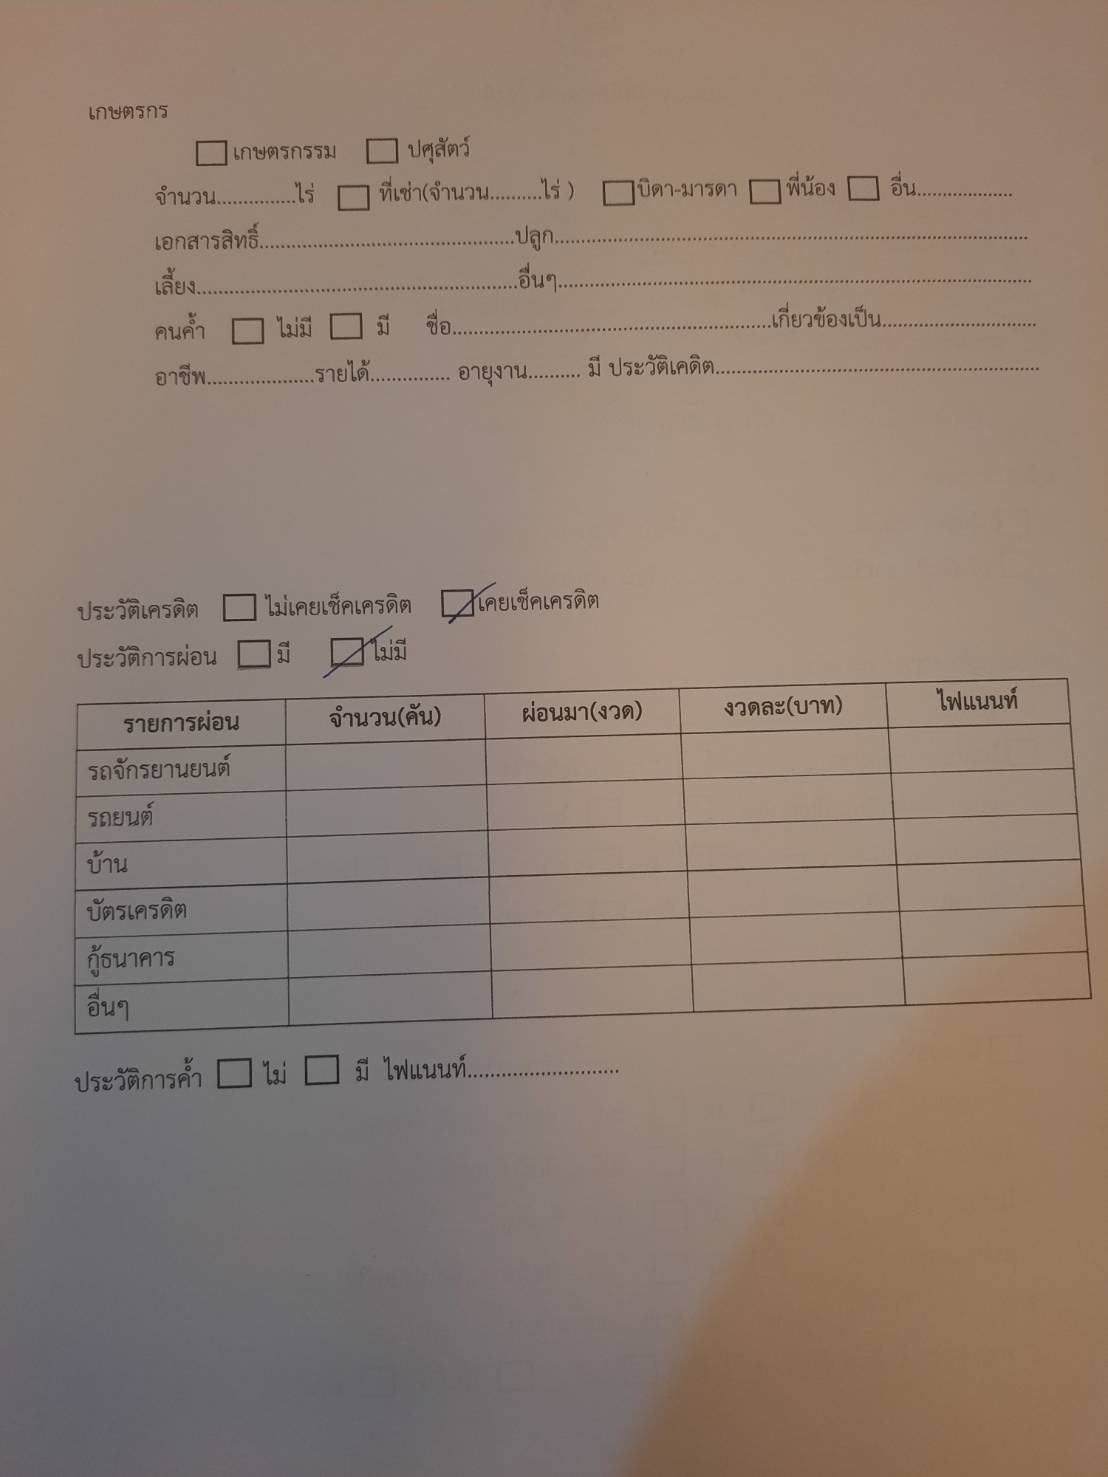 เกษตรกร
☐ เกษตรกรรม ☐ ปศุสัตว์
จำนวน...............ไร่ ☐ ที่เช่า(จำนวน..........ไร่ ) ☐ บิดา-มารดา ☐ พี่น้อง ☐ อื่น..................
เอกสารสิทธิ์................................................ปลูก..........................................................................................
เลี้ยง.............................................................อื่นๆ..........................................................................................
คนค้ำ ☐ ไม่มี ☐ มี ชื่อ.............................................................เกี่ยวข้องเป็น.............................
อาชีพ....................รายได้............... อายุงาน.......... มี ประวัติเคดิต..............................................................
ประวัติเครดิต ☐ ไม่เคยเช็คเครดิต ☑ เคยเช็คเครดิต
ประวัติการผ่อน ☐ มี ☑ ไม่มี
รายการผ่อน จำนวน(คัน) ผ่อนมา(งวด) งวดละ(บาท) ไฟแนนท์
รถจักรยานยนต์
รถยนต์
บ้าน
บัตรเครดิต
กู้ธนาคาร
อื่นๆ
ประวัติการค้ำ ☐ ไม่ ☐ มี ไฟแนนท์.............................